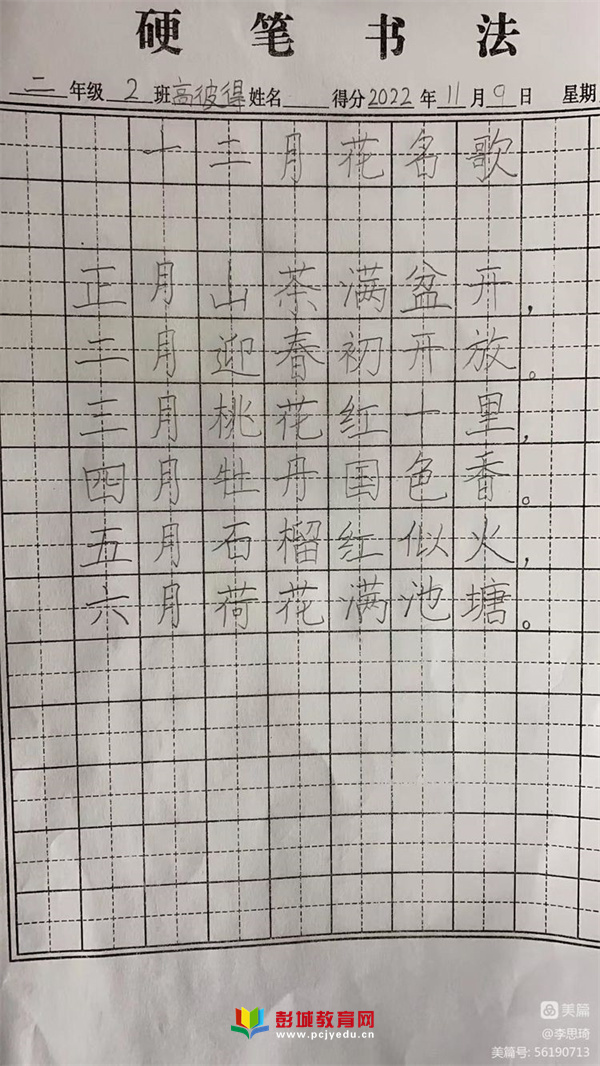 硬笔书法
二年级2班高彼得姓名 得分2022年11月9日 星期
十二月花名歌
正月山茶满盆开，
二月迎春初开放。
三月桃花红十里，
四月牡丹国色香。
五月石榴红似火，
六月荷花满池塘。
彭城教育网
www.pcjyedu.cn
美篇
@李思琦
美篇号: 56190713